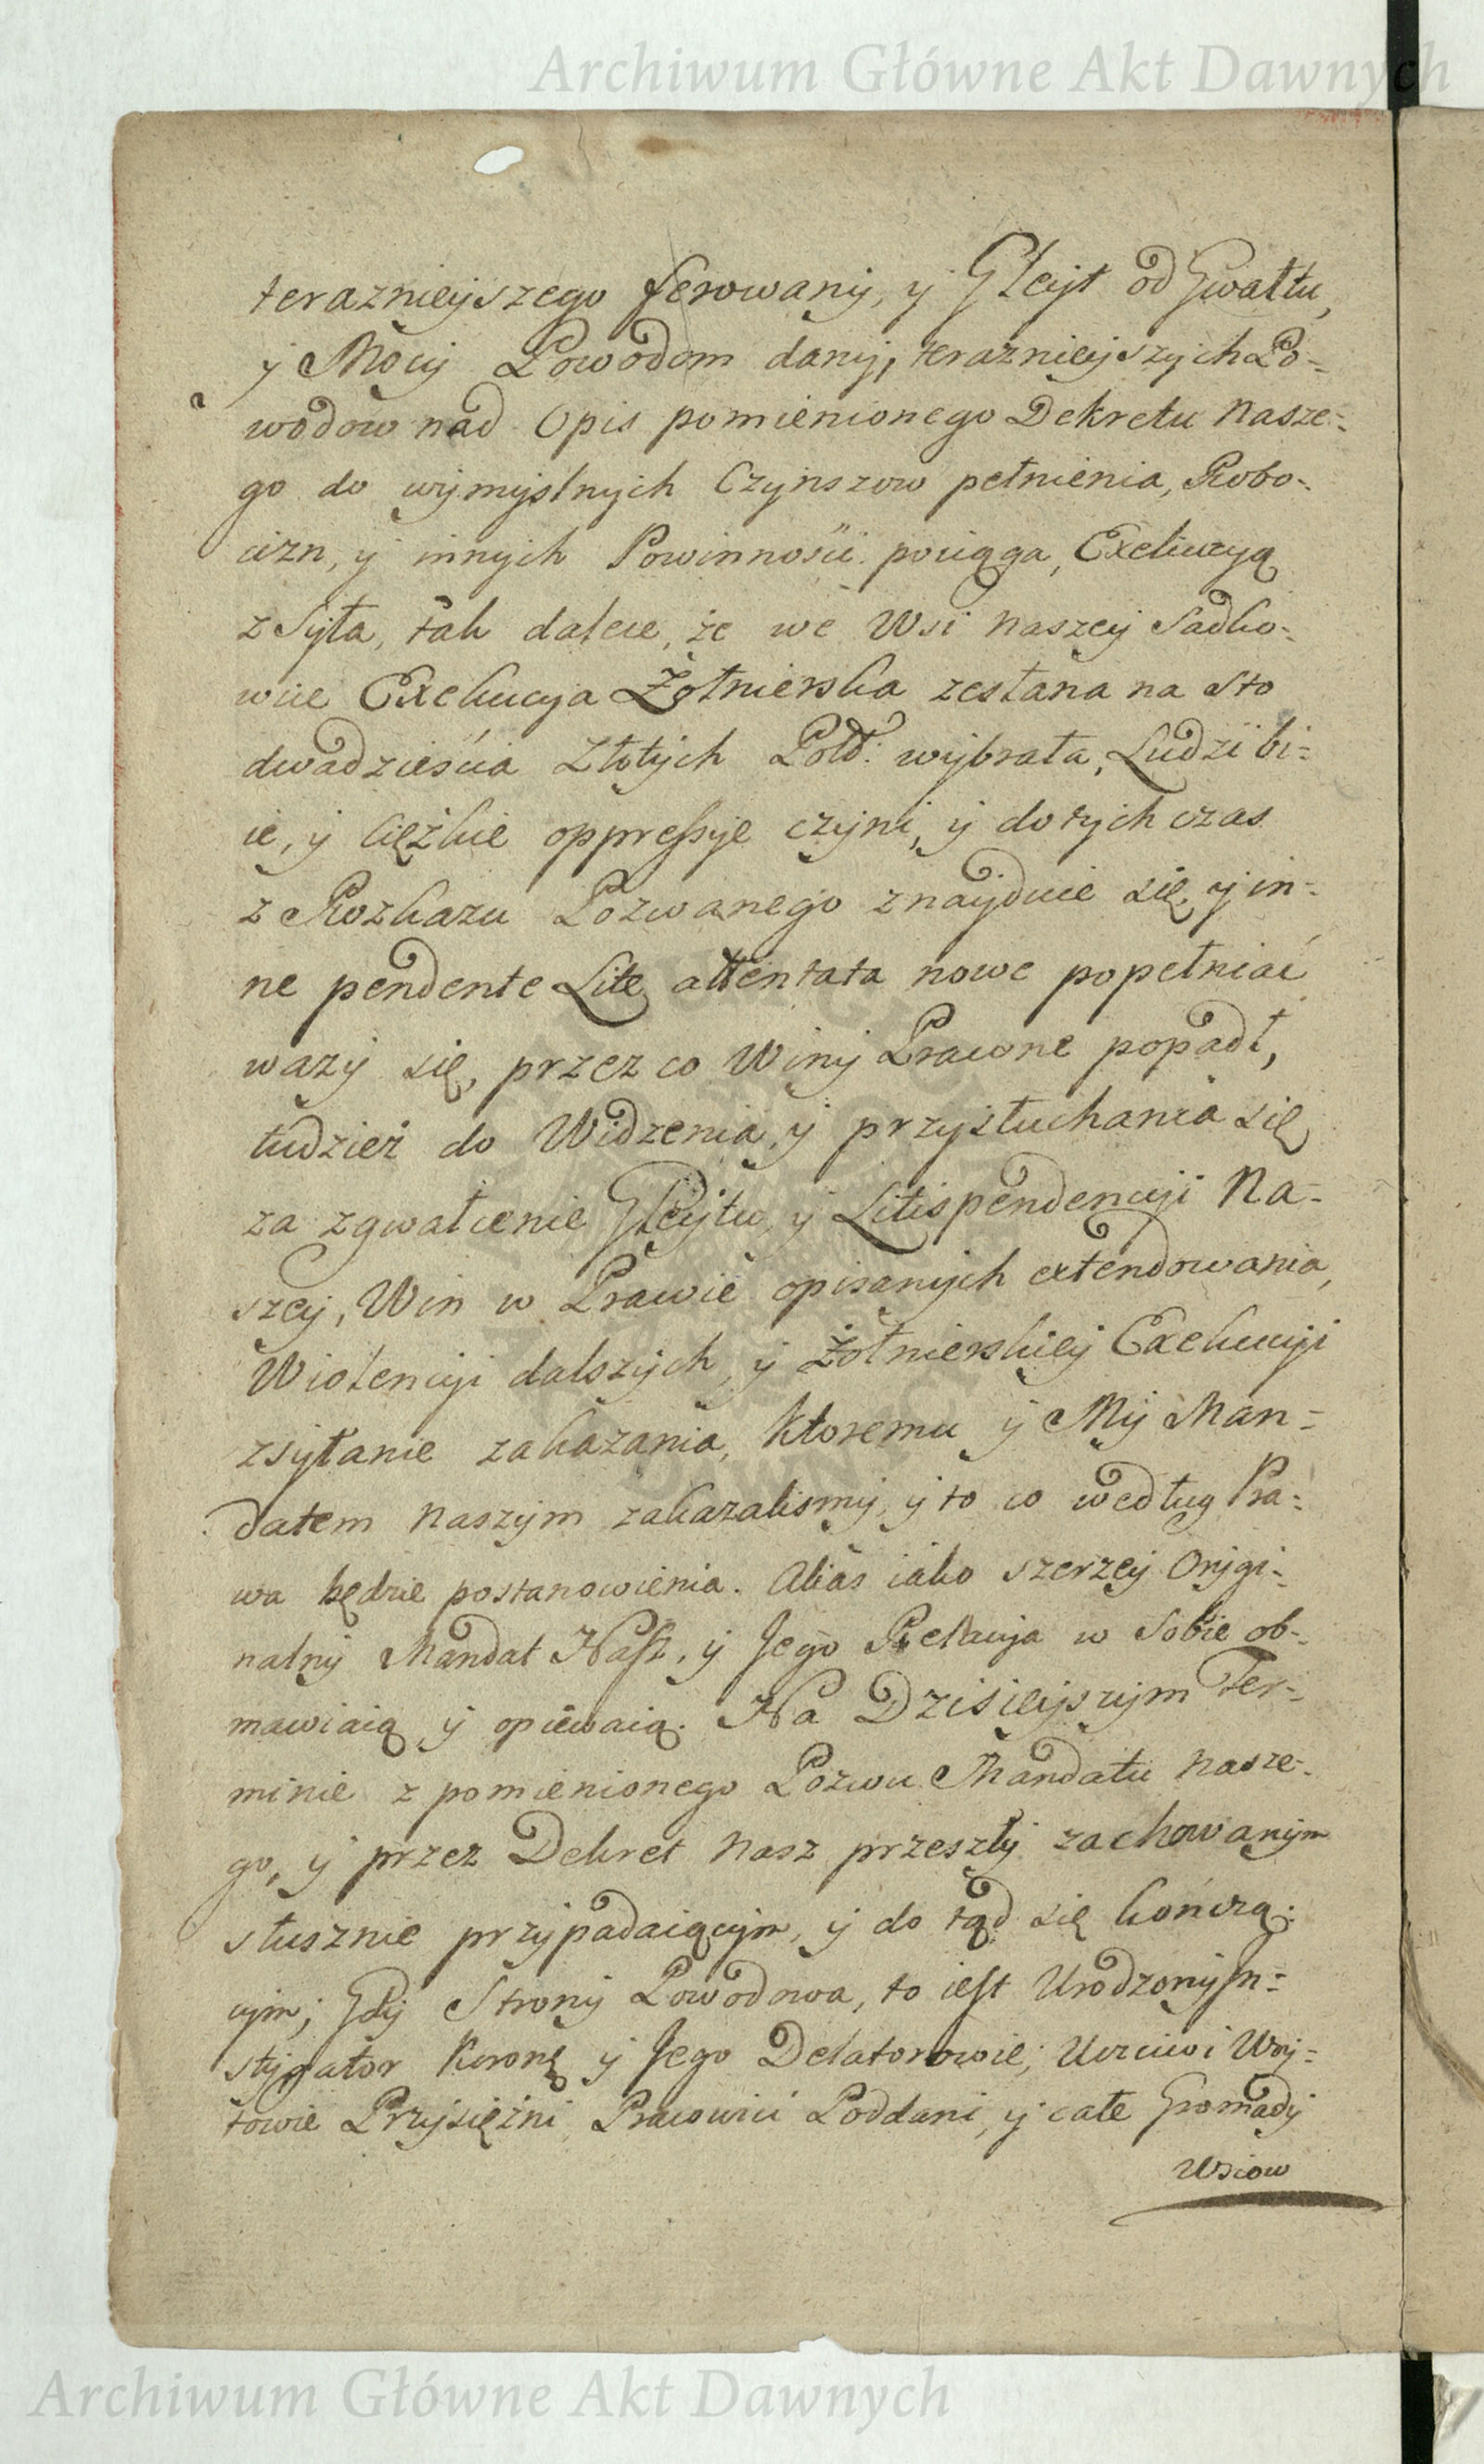 Archiwum Główne Akt Dawnych
terazniejszego ferowany, y Gleyt od Gwałtu,
y Mocy Powodom dany, terazniejszych Po-
wodow nad Opis pomienionego Dekretu Nasze-
go do wymyslnych Czynszow pełnienia, Robo-
cizn, y innych Powinnosci pociąga, Exekucyą
zsyła, tak dalece, że we Wsi Naszey Sadko-
wice Exekucya Żołnierska zesłana na sto
dwadzieścia Złotych Pold: wybrała, Ludzi bi-
ie, y ciężkie oppressye czyni, y dotychczas
z Rozkazu Pozwanego znayduie się, y in-
ne pendente Lite attentata nowe popełniać
wazy się, przez co Winy Prawne popadł,
tudzież do Widzenia, y przysłuchania się
za zgwałcenie Gleytu, y Litispendencyi Na-
szey, Win w Prawie opisanych extendowania,
Wiolencyi dalszych, y Żołnierskiey Exekucyi
zsyłanie zakazania, ktoremu y My Man-
datem Naszym zakazalismy, y to co według Pra-
wa będzie postanowienia. Alias iako szerzey Orygi-
nalny Mandat Nasz, y Jego Relacya w Sobie ob-
mawiaią y opiewaią. Na Dzisieyszym Ter-
minie z pomienionego Pozwu Mandatu Nasze-
go, y przez Dekret Nasz przeszły zachowanym
słusznie przypadaiącym, y do tąd się kończą-
cym; Gdy Strony Powodowa, to iest Urodzony In-
stygator Koronę y Jego Delatorowie; Uczciwi Woy-
towie Przysiężni, Pracowici Poddani, y całe Gromady
Wsiow
Archiwum Główne Akt Dawnych